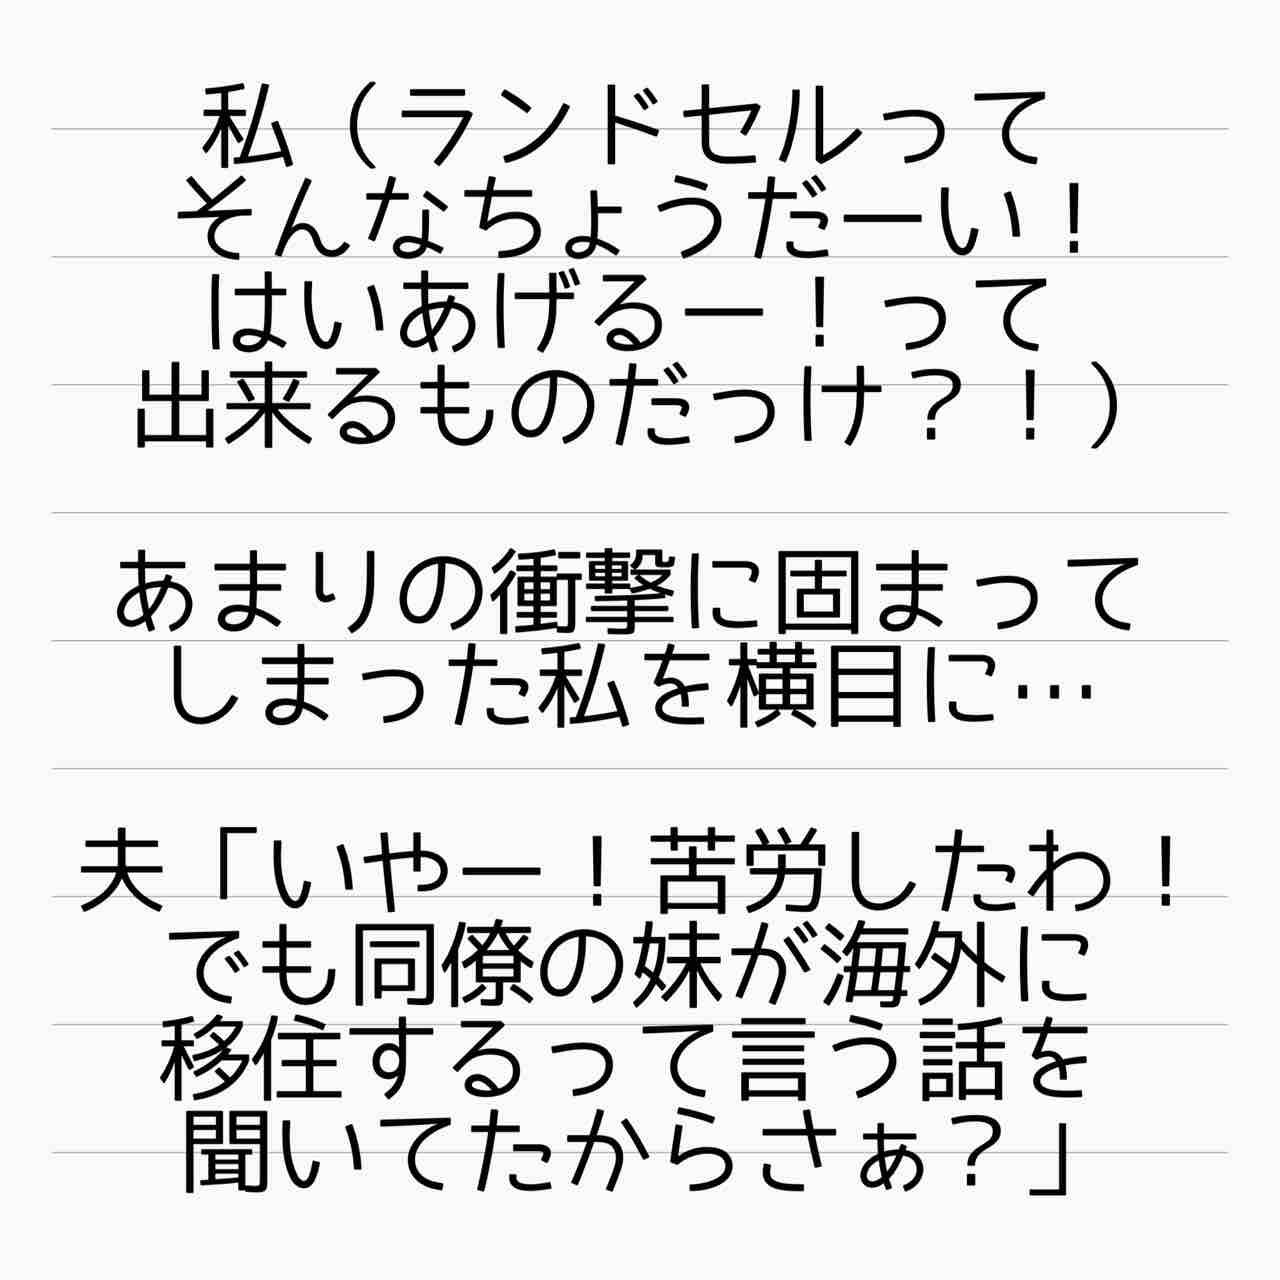 私（ランドセルって
そんなちょうだーい！
はいあげるー！って
出来るものだっけ？！）
あまりの衝撃に固まって
しまった私を横目に…
夫「いやー！苦労したわ！
でも同僚の妹が海外に
移住するって言う話を
聞いてたからさぁ？」